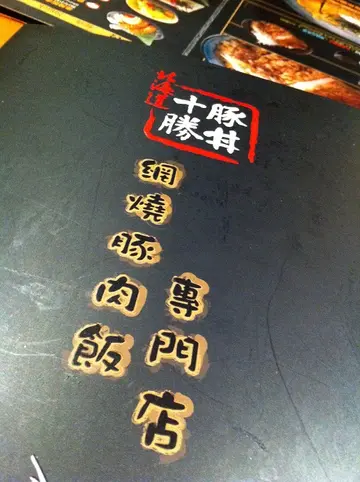 北海道
十勝
豚丼
網燒豚肉飯
專門店